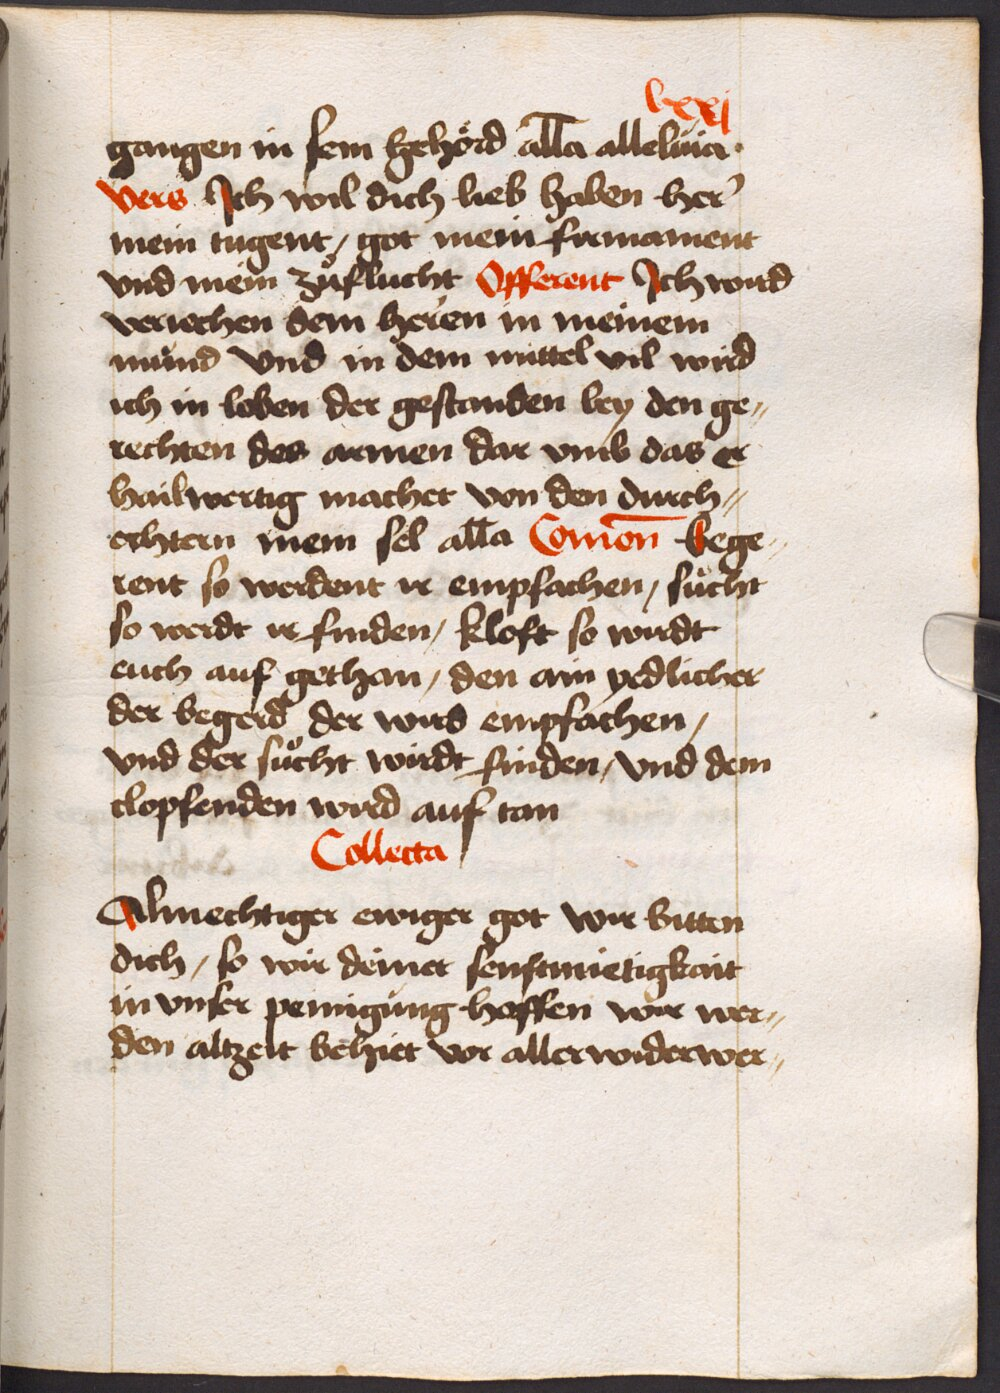 lxxj
gangen in sein gehörd all̅a alleluia ·
Vers Jch wil dich lieb haben her̕
mein tugent / got mein firmament
vnd mein zůflucht Offerent Jch wird
veriechen dem heren in meinem
mund Vnd in dem mittel vil wird
ich in loben der gestanden bey den ge〃
rechten des armen dar vmb das er
hailwertig machet von den durch〃
echtern mein sel all̅a Com̅on bege〃
rent so werdent ir empfachen / sůcht
so werdt ir finden / kloft so wirdt
euch auf gethan / den ain yedlicher
der begerd der wird empfachen /
vnd der sůcht wirdt finden / vnd dem
clopfenden wird auf tan
Collecta
Almechtiger ewiger got wir bitten
dich / so wir deiner senftmietigkait
in vnser peinigung hoffen wir wer〃
den altzeit behiet vor aller widerwer〃